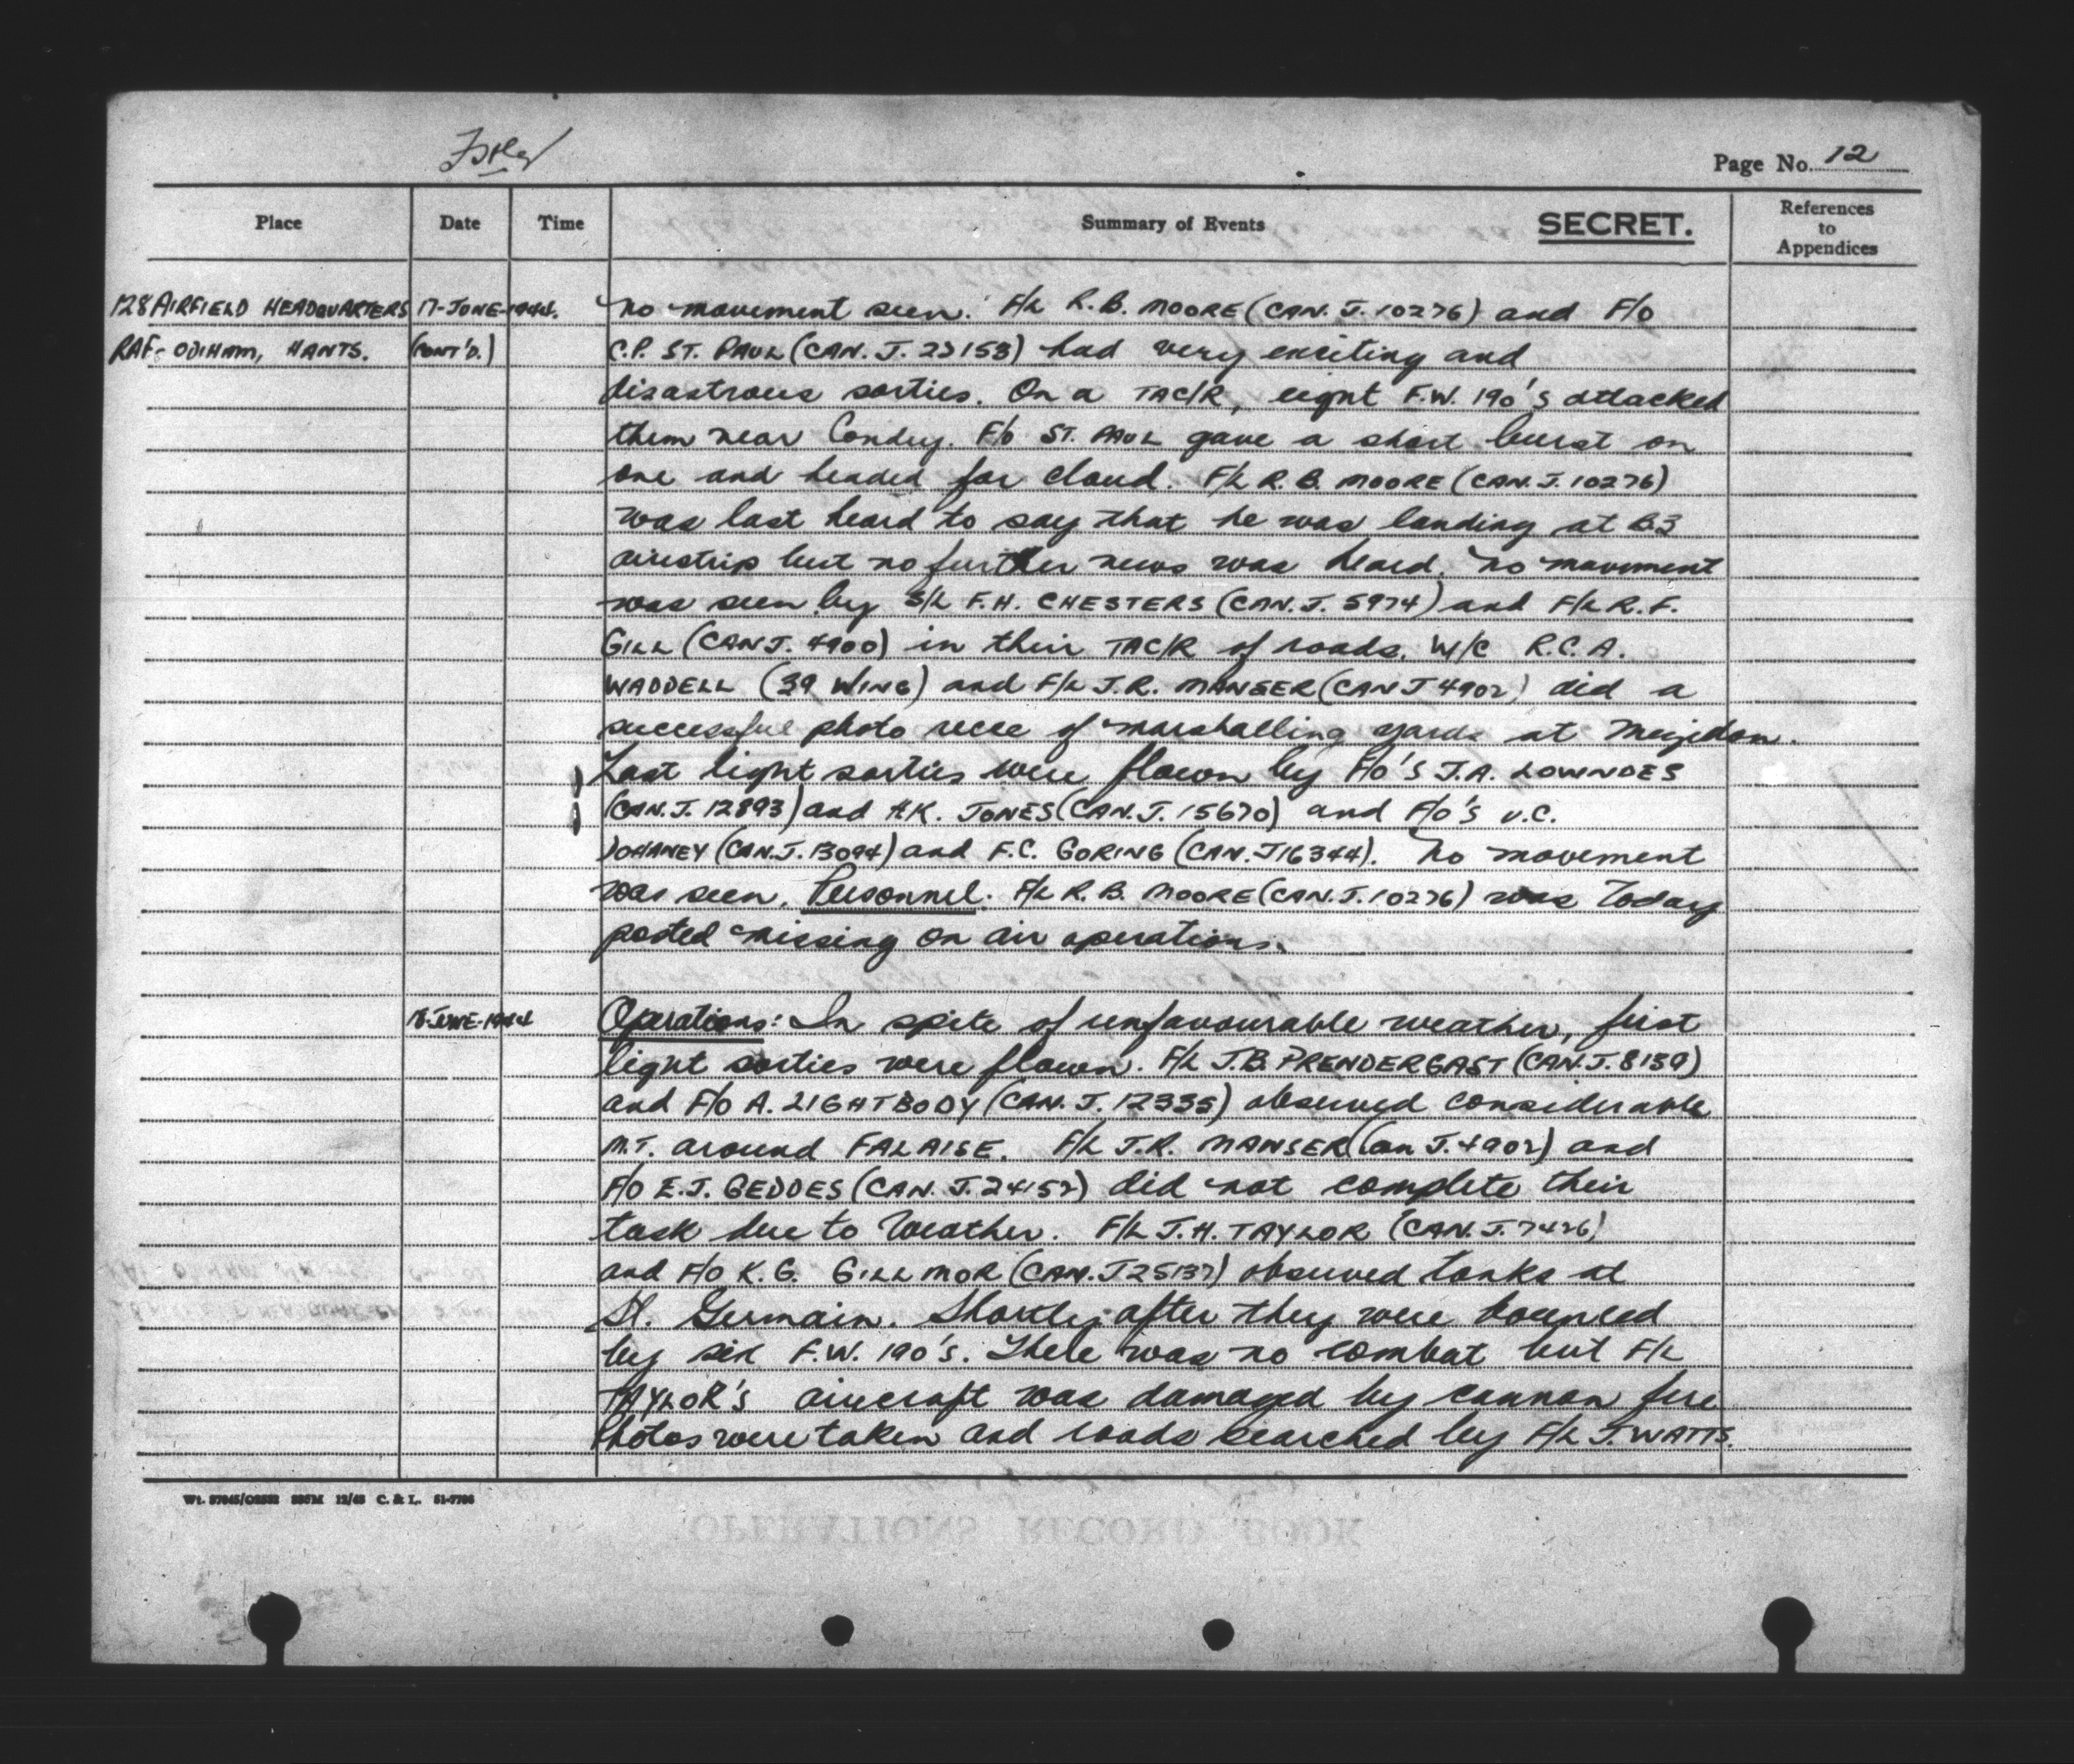 Page No. 12
Place Date Time Summary of Events SECRET. References to Appendices
128 AIRFIELD HEADQUARTERS 17-JUNE-1944. No movement seen. F/L R.B. MOORE (CAN. J. 10276) and F/O
RAF- ODIHAM, HANTS. (CONT'D.) C.P. ST. PAUL (CAN. J. 23153) had very exciting and
disastrous sorties. On a TAC/R, eight F.W. 190's attacked
them near Condey. F/O ST. PAUL gave a short burst on
one and headed for cloud. F/L R.B. MOORE (CAN. J. 10276)
was last heard to say that he was landing at B3
airstrip but no further news was heard. No movement
was seen by S/L F.H. CHESTERS (CAN. J. 5974) and F/L R.F.
GILL (CAN J. 4900) in their TAC/R of roads. W/C R.C.A.
WADDELL (39 WING) and F/L J.R. MANSER (CAN J 4902) did a
successful photo recce of marshalling yards at Mezidon.
Last light sorties were flown by F/O'S J.A. LOWNDES
(CAN. J. 12893) and H.K. JONES (CAN. J. 15670) and F/O'S V.C.
DOHANEY (CAN. J. 13094) and F.C. GORING (CAN. J16344). No movement
was seen. Personnel. F/L R.B. MOORE (CAN. J. 10276) was today
posted missing on air operations.
18-JUNE-1944 Operations: In spite of unfavourable weather, first
light sorties were flown. F/L J.B. PRENDERGAST (CAN. J. 8139)
and F/O A. LIGHTBODY (CAN. J. 12335) observed considerable
M.T. around FALAISE. F/L J.R. MANSER (Can J. 4902) and
F/O E.J. GEDDES (CAN. J. 24152) did not complete their
task due to weather. F/L J.H. TAYLOR (CAN. J. 7426)
and F/O K.G. GILLMOR (CAN. J25137) observed tanks at
St. Germain. Shortly after they were bounced
by six F.W. 190's. There was no combat but F/L
TAYLOR'S aircraft was damaged by cannon fire
Photos were taken and roads searched by F/L J. WATTS.
C. & L. 51-7706
OPERATIONS RECORD BOOK